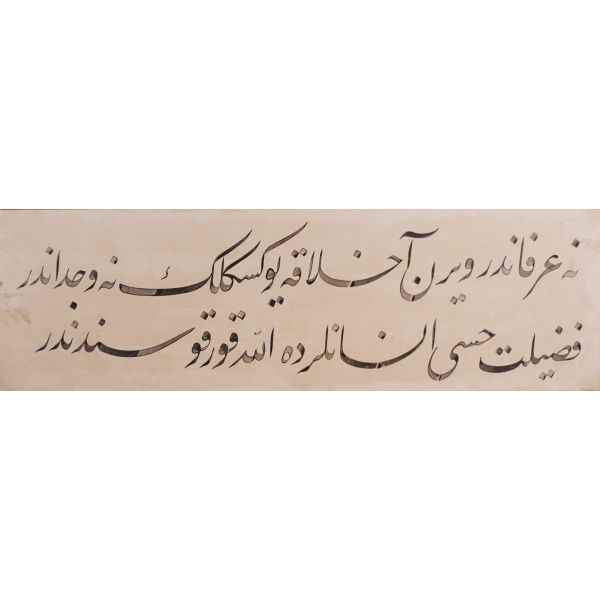 نه عرفاندر ویرن آخلاقه یوکسکلک نه وجداندر
فضیلت حسی انسانلرده الله قورقوسندندر